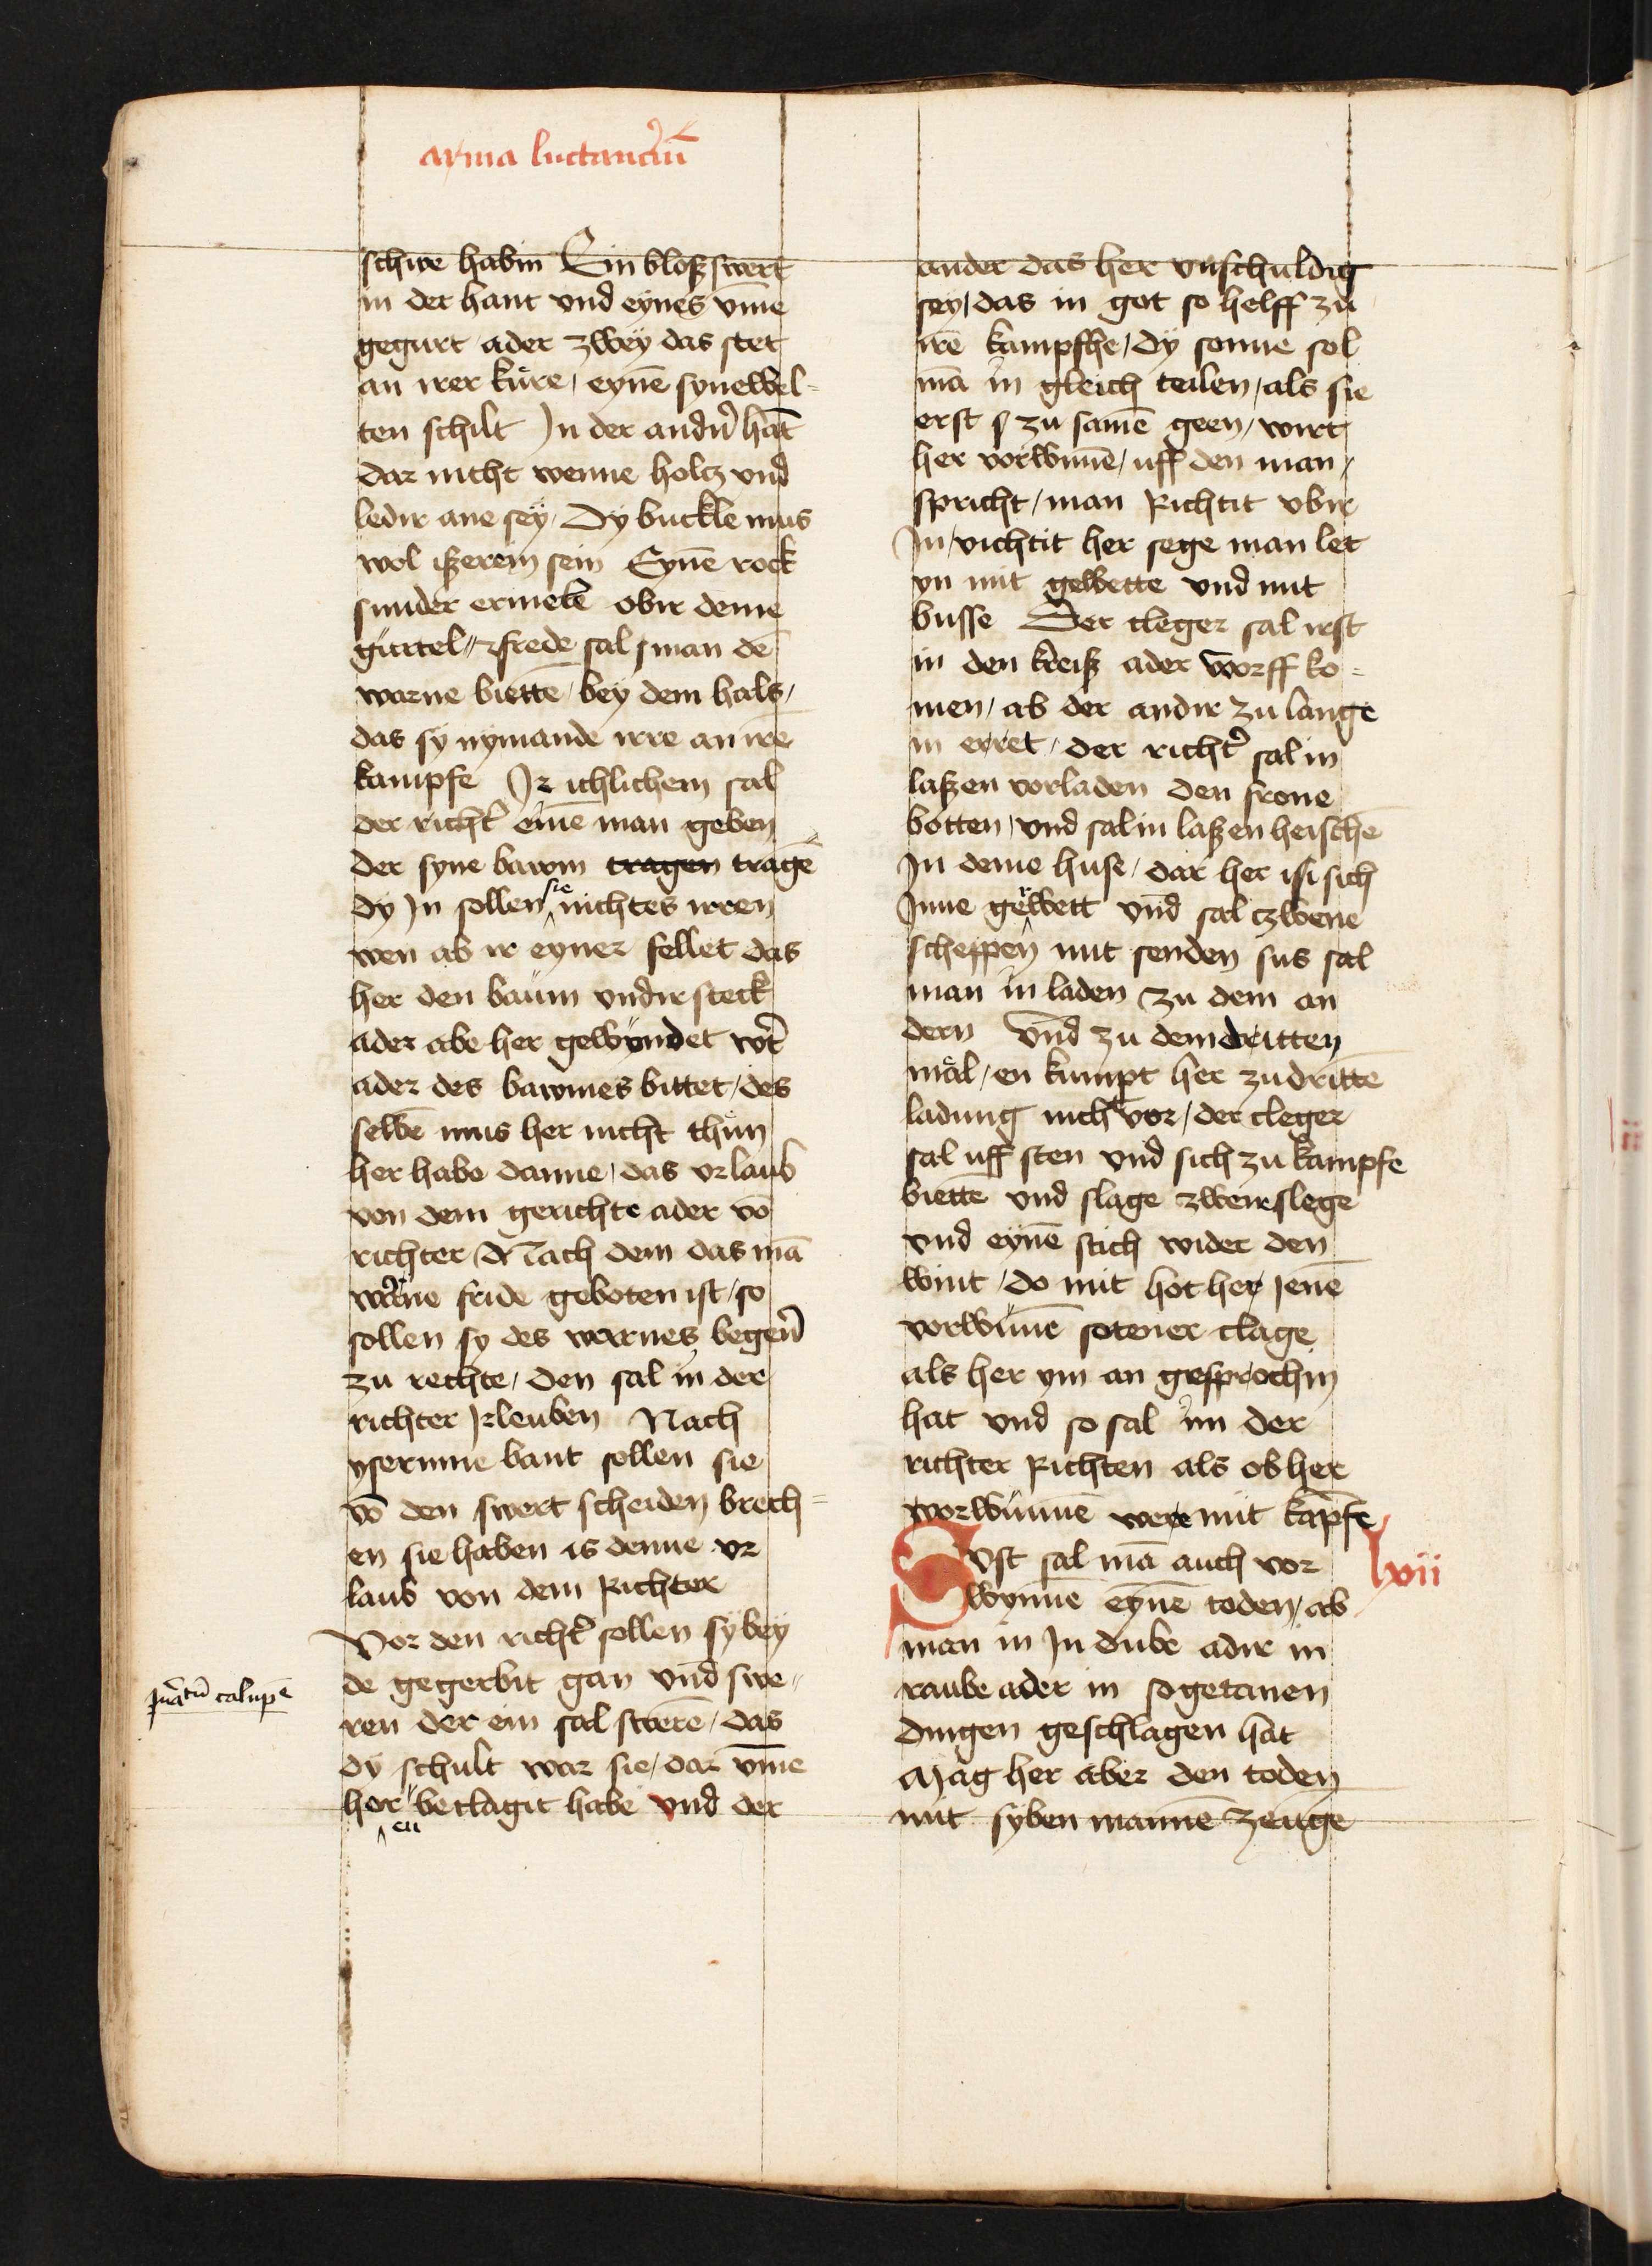 arma luctanciū
schwe habin Ein bloß swert
in der hant vnd eynes vm̄e
gegurt ader zwey das stet
an irer kure / eynē synewel-
ten schilt In der andn̄ hāt
dar nicht wenne holcz vnd
ledir ane sey / Dy buckle mus
wol ißerein sein Eynē rock
sunder ermele obir deme
gürtel frede sal man dē
warne biette / bey dem hals /
das sy nymande irre an irē
kampfe Ir ichlichem sal
der richt̉ einē man geben
der syne bawm tragen tragē
dy In sollen sie nichtes irren
wen ab ir eyner fellet das
her den baum vndirsteck
ader abe her gewundet wr̄t
ader des bawmes bittet / des
selbē mus her nicht thun
her habe danne / das vrlaub
von dem gerichte ader vō
richter Nach dem das mā
warne fride geboten ist / so
sollen sy des warnes begern̄
zu rechte / den sal in der
richter Irleuben Nach
yserinne bant sollen sie
vō den swert scheiden brech=
en sie haben is denne vr
laub von dem Richter
Vor den richt̉ sollen sy bey
de gegerbit gan vnd swe-
ren der ein sal swerē / das
dy schult war sie / dar vm̄e
her en beclagit habe vnd der
ander das her vnschuldig
sey / das in got so helff zu
irē kampfhe / dy sonne sol
mā in gleich teilen / als sie
erst zu samē geen / wirt
her vorwunē / uff den man /
spricht / man Richtit vbir
In / vichtit her sege man let
yn mit gewette vnd mit
busse Der cleger sal irst
in den kreiß ader worff ko-
men / ab der andir zu lange
in erret / der richt̉ sal in
laßen vorladen den frone
botten / vnd sal in laßen heischē
In deme huse / dar her isi sich
Inne gerwett vnd sal czwene
scheppen mit senden sus sal
man in laden zu dem an
dern vnd zu dem dritten
mal / en kumpt her zu drittē
ladung nicht vor / der cleger
sal uff sten vnd sich zu kampfe
biettē vnd slage zwene slege
vnd eynē stich wider den
wint / do mit hot her Jenē
vorwunē sotener clage
als her ym an gesprochin
hat vnd so sal im der
richter Richten als ob her
vorwunnē were mit kāpfe
Svst sal mā auch vor
wynne eynē toden / ab
man in In dube adir in
raube ader in sogetanen
dingen geschlagen hat
Mag her aber den toden
mit syben mannē zeuge
lxii